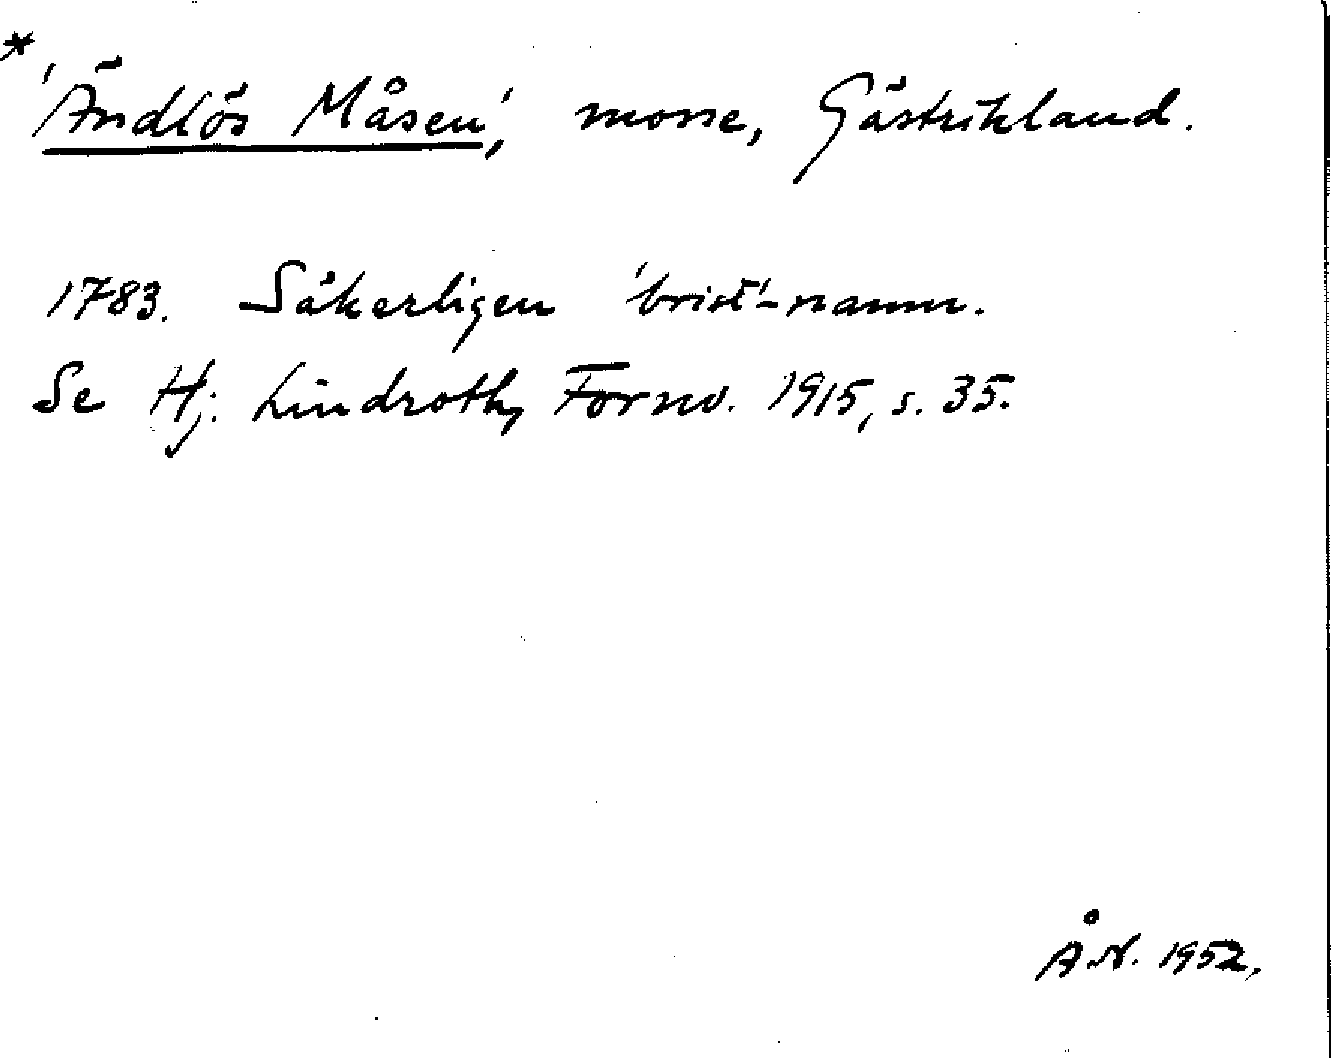 * 'Ändlös Måsen', mosse, Gästrikland.
1783. Säkerligen 'brist'-namn.
Se Hj. Lindroth, Fornv. 1915, s. 35.
Å.N. 1952.